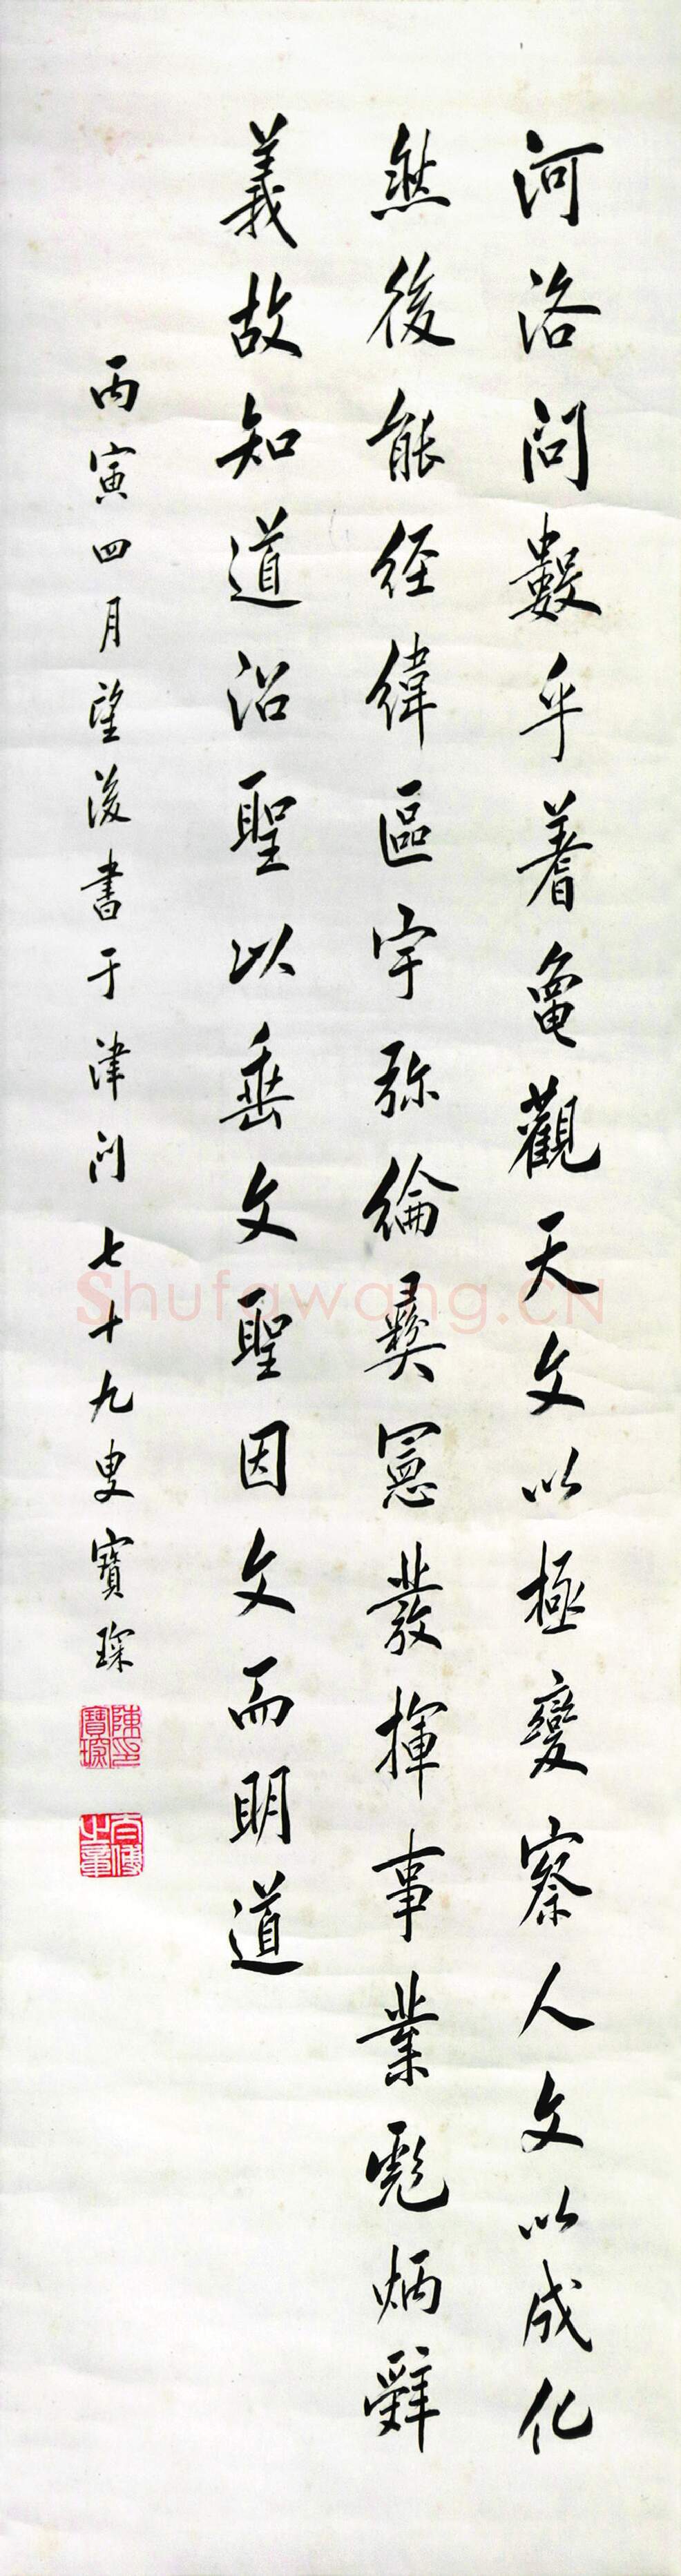 河洛問數乎蓍龜觀天文以極變察人文以成化
然後能經緯區宇彌綸彝憲發揮事業彪炳辭
義故知道沿聖以垂文聖因文而明道
丙寅四月望後書于津門七十九叟寶琛
陳寶琛印
太傅之章
Shufawang.CN